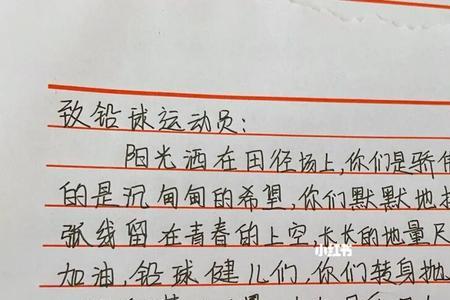 致铅球运动员:
阳光洒在田径场上,你们是骄
的是沉甸甸的希望,你们默默地
张线留在青春的上空,长长的地量尺
小红书
加油,铅球健儿们,你们转身抛